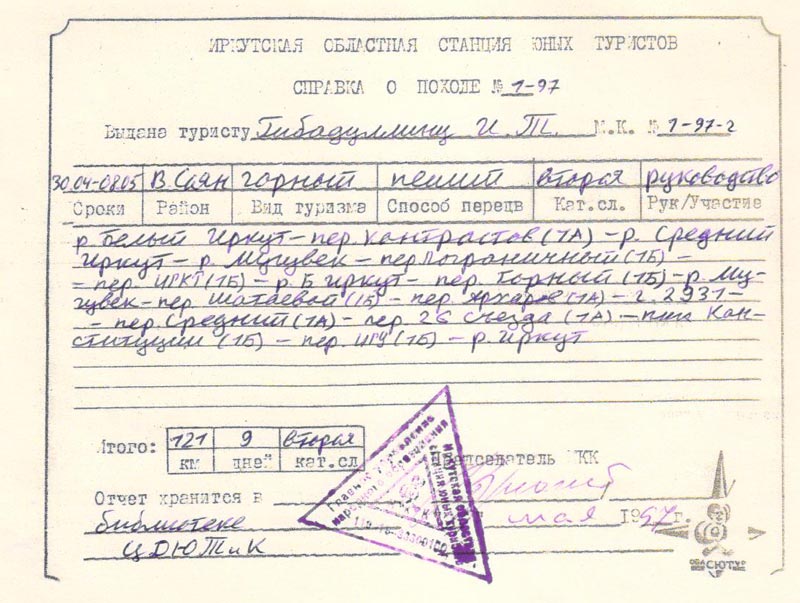 ИРКУТСКАЯ ОБЛАСТНАЯ СТАНЦИЯ ЮНЫХ ТУРИСТОВ
СПРАВКА О ПОХОДЕ № 1-97
Выдана туристу Гибадуллину И. Т. М.К. № 1-97-2
30.04-0805 В.Саян горный пеший вторая руководство
Сроки Район Вид туризма Способ передв Кат.сл. Рук/Участие
р. Белый Иркут – пер. Контрастов (1А) – р. Средний
Иркут – р. Мугувек – пер Пограничный (1Б) –
– пер. ИРКГ (1Б) – р. Б Иркут – пер. Горный (1Б) – р. Му-
гувек – пер. Шатаевой (1Б) – пер. Архаров (1А) – г. 2931 –
– пер. Средний (1А) – пер. 26 съезда (1А) – пик Кон-
ституции (1Б) – пер. ИГУ (1Б) – р. Иркут
Итого: 121 9 вторая
км дней кат.сл
Председатель МКК
Отчет хранится в
библиотеке
мая 1997 г.
ЦДЮТиК
Главное управление
народного образования
Иркутская областная
станция юных туристов
ОБЛ СЮТУР